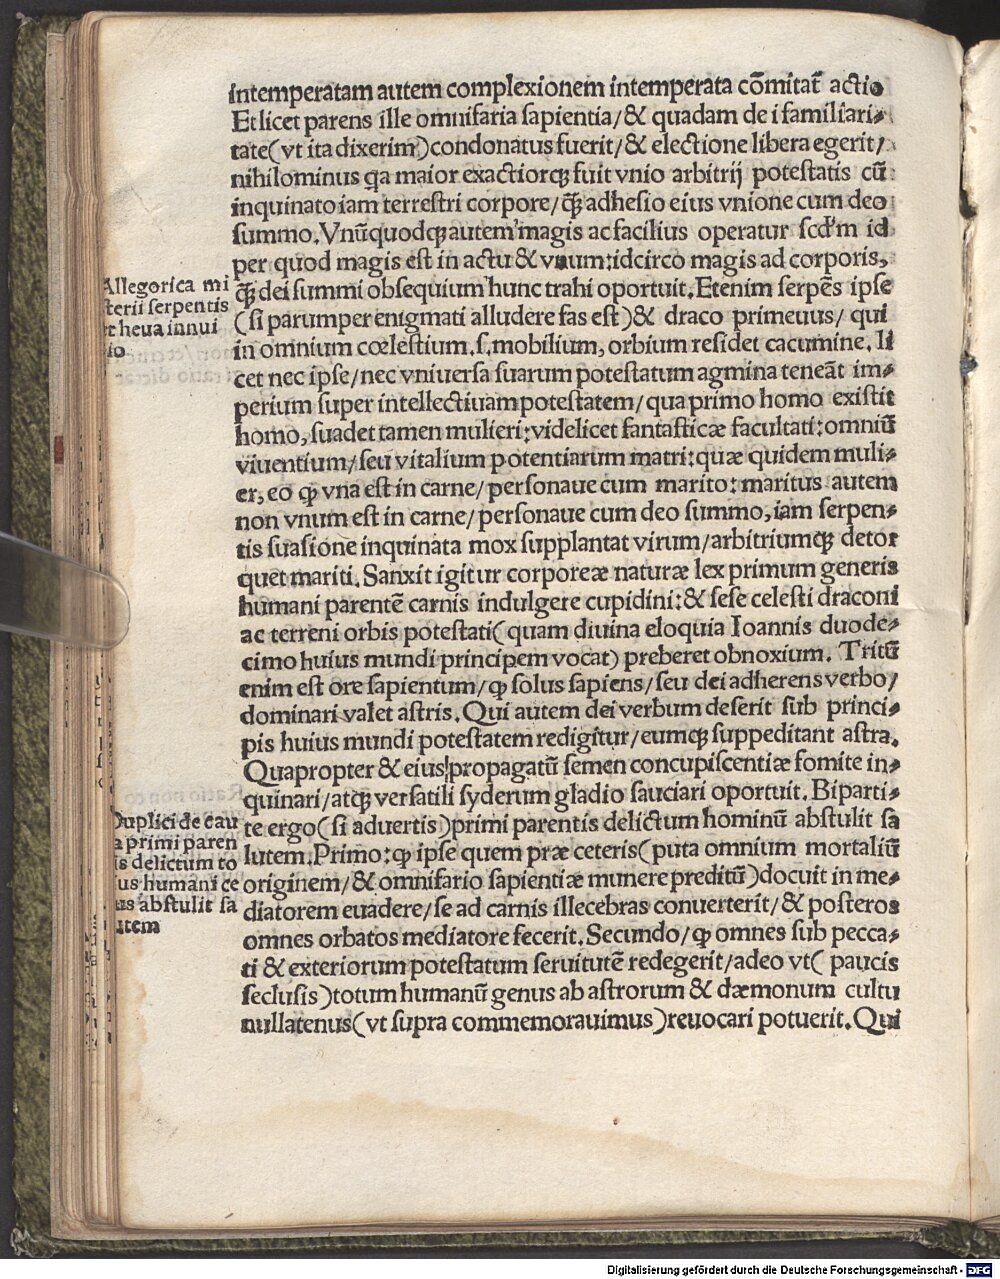 intemperatam autem complexionem intemperata cōmitat᷑ actio
Et licet parens ille omnifaria sapientia/& quadam de i familiari⸗
tate(vt ita dixerim)condonatus fuerit/& electione libera egerit/
nihilominus qa maior exactiorq; fuit vnio arbitrij potestatis cū
inquinato iam terrestri corpore/q̄; adhesio eius vnione cum deo
summo. Vnūquodq; autem magis ac facilius operatur scd'm id
per quod magis est in actu & vnum: idcirco magis ad corporis,
q̄; dei summi obsequium hunc trahi oportuit. Etenim serpēs ipse
(si parumper enigmati alludere fas est)& draco primeuus/ qui
in omnium cœlestium. s. mobilium, orbium residet cacumine. li
cet nec ipse/nec vniuersa suarum potestatum agmina teneāt im⸗
perium super intellectiuam potestatem/qua primo homo existit
homo, suadet tamen mulieri: videlicet fantasticæ facultati: omniū
viuentium/seu vitalium potentiarum matri: quæ quidem muli⸗
er, eo ꝙ vna est in carne/personaue cum marito: maritus autem
non vnum est in carne/personaue cum deo summo, iam serpen⸗
tis suasione inquinata mox supplantat virum/arbitriumq; detor
quet mariti. Sanxit igitur corporeæ naturæ lex primum generis
humani parentē carnis indulgere cupidini: & sese celesti draconi
ac terreni orbis potestati(quam diuina eloquia Ioannis duode⸗
cimo huius mundi principem vocat) preberet obnoxium. Tritū
enim est ore sapientum/ꝙ solus sapiens/seu dei adherens verbo/
dominari valet astris. Qui autem dei verbum deserit sub princi⸗
pis huius mundi potestatem redigitur/eumq; suppeditant astra.
Quapropter & eius propagatū semen concupiscentiæ fomite in⸗
quinari/atq; versatili syderum gladio sauciari oportuit. Biparti⸗
te ergo(si aduertis)primi parentis delictum hominū abstulit sa
lutem. Primo: ꝙ ipse quem præ ceteris(puta omnium mortaliū
originem/& omnifario sapientiæ munere preditū)docuit in me⸗
diatorem euadere/se ad carnis illecebras conuerterit/& posteros
omnes orbatos mediatore fecerit. Secundo/ꝙ omnes sub pecca⸗
ti & exteriorum potestatum seruitutē redegerit/adeo vt( paucis
seclusis)totum humanū genus ab astrorum & dæmonum cultu
nullatenus(vt supra commemorauimus)reuocari potuerit. Qui
Allegorica mi
sterii serpentis
heua innui
io
Duplici de cau
a primi paren
is delictum to
us humani ge
us abstulit sa
utem
Digitalisierung gefördert durch die Deutsche Forschungsgemeinschaft - DFG